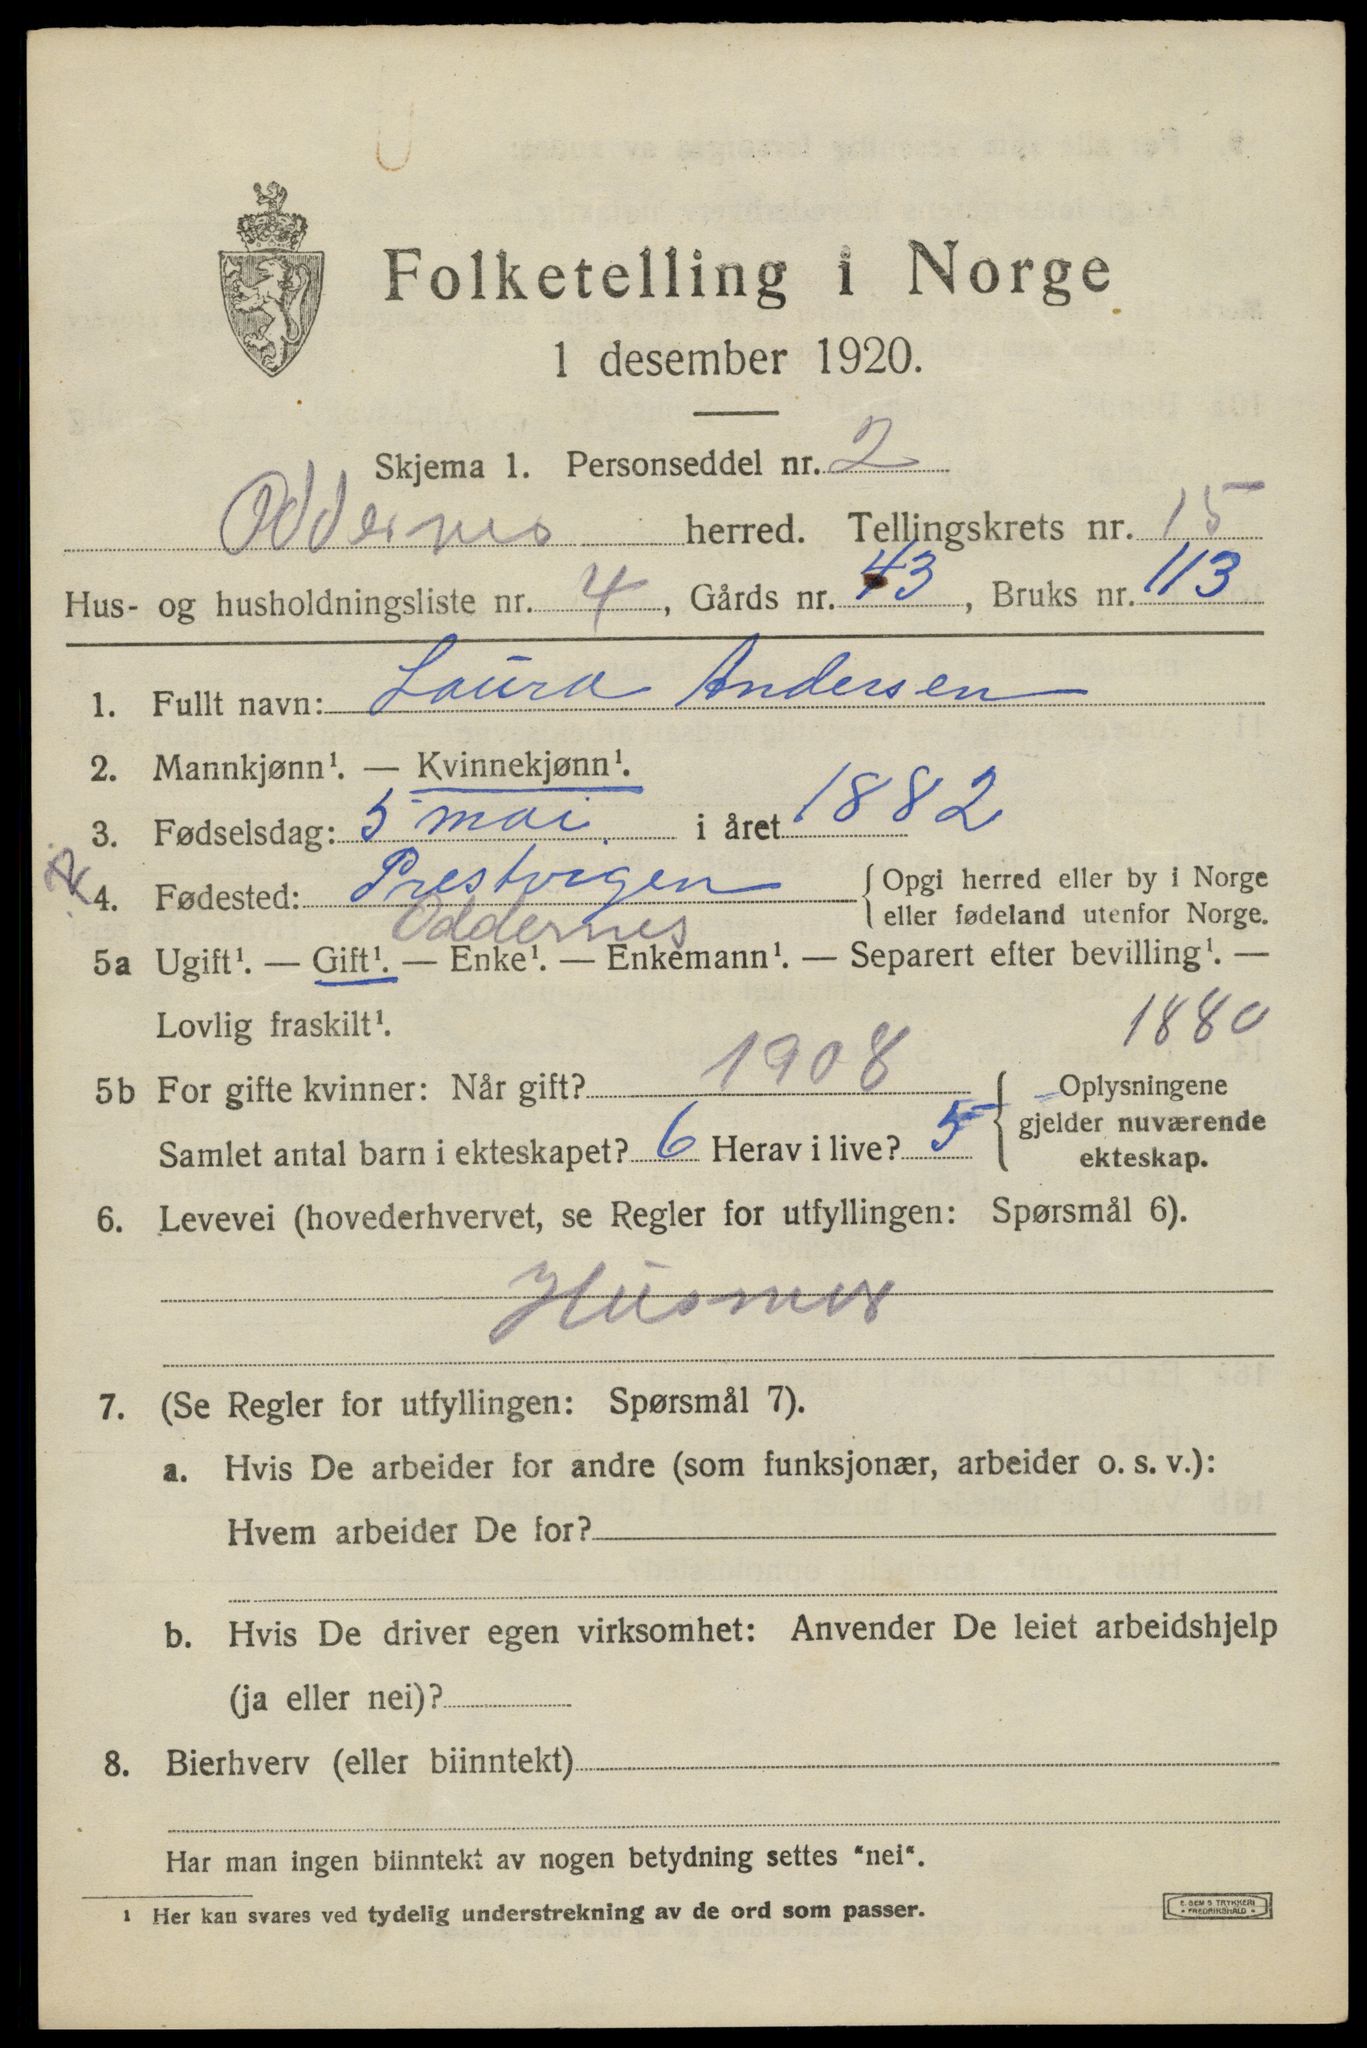 Folketelling i Norge
1 desember 1920.
Skjema 1. Personseddel nr. 2
Oddernes herred. Tellingskrets nr. 15
Hus- og husholdningsliste nr. 4, Gårds nr. 43, Bruks nr. 113
1. Fullt navn: Laura Andersen
2. Mannkjønn¹. — Kvinnekjønn¹.
3. Fødselsdag: 5 mai i året 1882
4. Fødested: Prestvigen {Opgi herred eller by i Norge
eller fødeland utenfor Norge.
Oddernes
5a Ugift¹. — Gift¹. — Enke¹. — Enkemann¹. — Separert efter bevilling¹. —
Lovlig fraskilt¹.
1880
5b For gifte kvinner: Når gift? 1908 { Oplysningene
gjelder nuværende
ekteskap.
Samlet antal barn i ekteskapet? 6 Herav i live? 5
6. Levevei (hovederhvervet, se Regler for utfyllingen: Spørsmål 6).
Husmor
7. (Se Regler for utfyllingen: Spørsmål 7).
a. Hvis De arbeider for andre (som funksjonær, arbeider o. s. v.):
Hvem arbeider De for?
b. Hvis De driver egen virksomhet: Anvender De leiet arbeidshjelp
(ja eller nei)?
8. Bierhverv (eller biinntekt)
Har man ingen biinntekt av nogen betydning settes "nei".
¹ Her kan svares ved tydelig understrekning av de ord som passer.
E. SEM S. TRYKKERI
FREDRIKSHALD